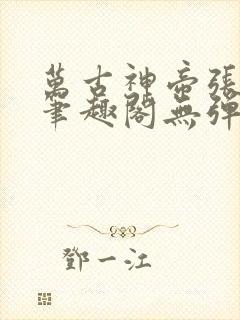 萬古神帝張
筆趣閣無彈
鄧一江